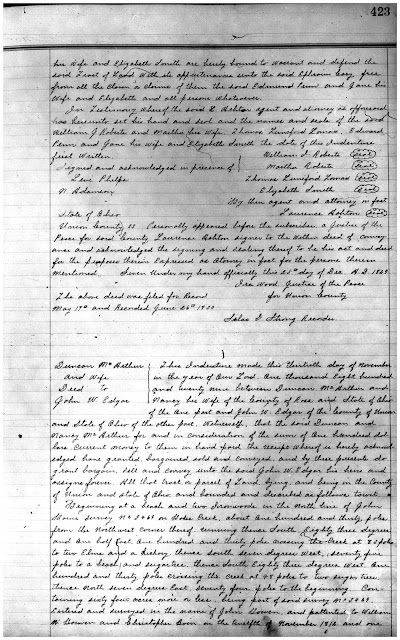 423
his Wife and Elizabeth Smith are hereby bound to warrant and defend the
said Tract of Land with its appurtenances unto the said Ephraim Cary, free
from all the Claim or Claims of them the said Edmund Penn and Jane his
Wife and Elizabeth and all persons Whatsoever.
In Testimony Whereof the said L Ashton agent and attorney as aforesaid
has hereunto set his hand and seal and the names and seals of the said
William J Roberts and Martha his Wife, Thomas Lunsford Lomax, Edward
Penn and Jane his Wife and Elizabeth Smith the date of this Indenture
first Written
Signed and acknowledged in presence of
Levi Phelps
N. Adamson
William J. Roberts Seal
Martha Roberts Seal
Thomas Lunsford Lomax Seal
Elizabeth Smith Seal
By their agent and attorney in fact
Laurence Ashton Seal
State of Ohio
Union County SS Personally appeared before the subscriber a Justice of the
Peace for said County Laurence Ashton signer to the within deed of convey
ance and acknowledged the signing and sealing thereof to be his act and deed
for the purposes therein Expressed as attorney in fact for the persons therein
Mentioned. Given Under my hand officially this 25th day of Dec A.D. 1829
Ira Wood Justice of the Peace
for Union County
The above deed was filed for Record
May 19th and Recorded June 26th 1830
Silas G Strong Recorder
Duncan McArthur
And Wife
Deed to
John W. Edgar
This Indenture made this thirtieth day of November
in the year of Our Lord One thousand Eight hundred
and twenty nine between Duncan McArthur and
Nancy his Wife of the County of Ross and State of Ohio
of the One part and John W. Edgar of the County of Union
and State of Ohio of the other part, Witnesseth, that the said Duncan and
Nancy McArthur for and in consideration of the sum of One hundred dol
lars Current money to them in hand paid the receipt whereof is hereby acknowl
edged have granted, bargained, sold and conveyed and by these presents do
grant bargain, sell and convey unto the said John W. Edgar his heirs and
assigns forever. All that tract or parcel of Land, lying, and being in the County
of Union and state of Ohio and bounded and described as follows towit:
Beginning at a beech and two Ironwoods in the North line of John
survey No 3465 on Creek, about One hundred and thirty poles
from the Northwest Corner thereof. Running thence South, Eighty three degrees
and One half East One hundred and thirty poles crossing the Creek at 80 poles
to two Elms and a hickory, thence south seven degrees West, seventy five
poles to a beech, and sugartree, thence South Eighty three degrees West, One
hundred and thirty poles crossing the Creek at 48 poles to two sugar trees
thence North seven degrees East seventy four poles to the beginning. Con
taining sixty four acres more or less, being part of said survey No
Entered and surveyed in the name of John and patented to William
and Christopher on the twelfth of November 1812 and one